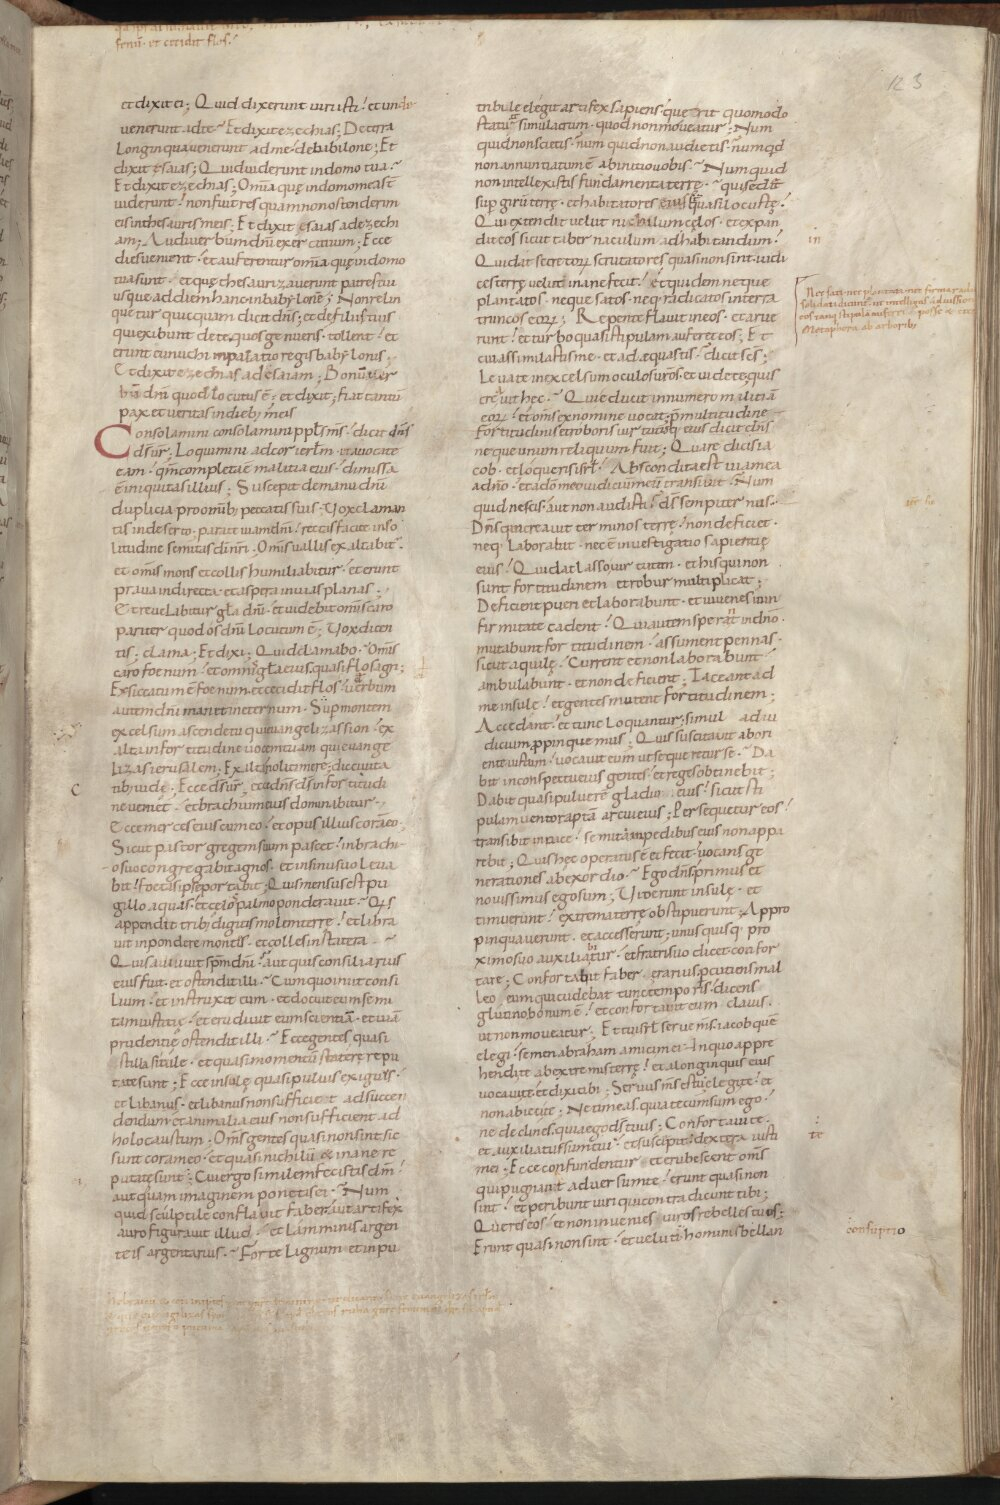 fenū · et cecidit flos ·
123
et dixit ei ; Quid dixerunt viri isti ? et unde
venerunt ad te ~ Et dixit ezechias ; De terra
Longinqua venerunt ad me · de babilone ; Et
dixit esaias ; Quid viderunt in domo tua ~
Et dixit ezechias ; Omīa quę in domo mea sē
viderunt ! non fuit res quam non ostenderim
eis in thesauris meis ; Et dixit esaias ad ezechi
am ; Audi verbum dnī exercituum ; Ecce
dies venient · et auferentur omīa quę in domo
tua sunt · et quę thesaurizaverunt patres tui
usque ad diem hanc in babylonē ; Non relin
quetur quicquam dicit dnś ; et de filiis tuis
qui exibunt de te quos genueris · tollent ! et
erunt eunuchi in palatio regis babylonis ·
Et dixit ezechias ad esaiam ; Bonum ver
bū dnī quod locutus ē ; et dixit ; fiat tantū
pax et veritas in dieb; meis
Consolamini consolamini ppls ms · dicit dns
ds vr ; Loquimini ad cor ierlm · et advocate
eam · qm completa ē malitia eius · dimissa
ē iniquitas illius ; Suscepit de manu dnī
duplicia pro omnib; peccatis suis · Vox claman
tis in deserto · parate viam dnī · rectas facite in so
litudine semitas dī nrī · Omīs vallis exaltabit ·
et omīs mons et collis humiliabitur · et erunt
prava in directa · et aspera in vias planas ·
Et revelabitur gla dnī · et videbit omīs caro
pariter quod os dnī locutum ē ; Vox dicen
tis ; clama · Et dixi ; Quid clamabo · Omīs
caro foenum · et omīs gla eius quasi flos agri ;
Exsiccatum ē foenum · et cecidit flos · verbum
autem dnī manet in eternum · Sup montem
excelsum ascende tu qui evangelizas sion · ex
alta in fortitudine vocem tuam qui evange
lizas ierusalem ; Exalta noli timere ; dic civita
tib; iudę ; Ecce ds vr ; ecce dns ds in fortitudi
ne veniet · et brachium eius dominabitur ~
Ecce merces eius cum eo · et opus illius coram eo
Sicut pastor gregem suum pascet · in brachi
o suo congregabit agnos · et in sinu suo leva
bit ! foetas ipse portabit ; Quis mensus est pu
gillo aquas · et celos palmo ponderavit ~ Qis
appendit trib; digitis molem terrę ! et libra
vit in pondere montes · et colles in statera · ~
Quis adiuvit spm dnī ! aut quis consiliarius
eius fuit · et ostendit illi · ~ Cum quo iniit consi
lium · et instruxit eum · et docuit eum semi
tam iustitię ! et erudivit eum scientiam · et viam
prudentię ostendit illi · ~ Ecce gentes quasi
stilla situle · et quasi momentū staterę repu
tatę sunt ; Ecce insulę quasi pulvis exiguus ·
et libanus · et libanus non sufficient ad succen
dendum et animalia eius non sufficient ad
holocaustum ; Omīs gentes quasi non sint sic
sunt coram eo · et quasi nichilū & inane re
putatę sunt ; Cui ergo similem fecistis dm̄ !
aut quam imaginem ponetis ei · ~ Num
quid sculptile conflavit faber · aut artifex
auro figuravit illud · et lamminis argen
teis argentarius · ~ Forte lignum et inpu
tribile elegit artifex sapiens · querit quomodo
statuat simulacrum · quod non moveatur ; Num
quid non scietis · num quid non audietis · numquid
non annuntiatum ē ab initio vobis ~ Numquid
non intellexistis fundamenta terrę · ~ qui sedet
sup girū terrę · et habitatores eius quasi locustę !
Qui extendit velut nichilum celos · et expan
dit eos sicut tabernaculum ad habitandum ·
Qui dat secretorum scrutatores quasi non sint · iudi
ces terrę velut inane fecit · et quidem neque
plantatos · neque satos · neq; radicatos in terra
truncos eorum ; Repente flavit in eos · et arue
runt ! et turbo quasi stipulam auferet eos ; Et
cui assimilastis me · et adequastis ~ dicit scs ;
Levate in excelsum oculos vros · et videte · quis
creavit hec · ~ Qui educit in numero militiā
eorum · et omīs ex nomine vocat · pre multitudine
fortitudinis et roboris virtutisq; eius dicit dns
neque unum reliquum fuit ; Quare dicis ia
cob · et loqueris isrl · Abscondita est via mea
a dn̄o · et a dō meo iudicium meū transivit · ~ Num
quid nescis · aut non audisti ; ds sempiternus ·
Dns qui creavit terminos terrę · non deficiet ·
neq; laborabit · nec ē investigatio sapientię
eius ! Qui dat lasso virtutem · et his qui non
sunt fortitudinem et robur multiplicat ;
Deficient pueri et laborabunt · et iuvenes in in
firmitate cadent ! Qui autem sperant in dnō ·
mutabunt fortitudinem · assument pennas ·
sicut aquilę · Current et non laborabunt ·
ambulabunt · et non deficient ; Taceant ad
me insulę ! et gentes mutent fortitudinem ;
Accedant · et tunc loquantur ; simul ad iu
dicium propinquemus ; Quis suscitavit ab ori
ente iustum · vocavit eum ut sequeretur se · ~ Da
bit in conspectu eius gentes · et reges obtinebit ;
Dabit quasi pulverē gladio eius ! sicut sti
pulam vento raptā arcui eius ; Persequetur eos !
transibit in pace · semita in pedibus eius non appa
rebit ; Quis hęc operatus ē et fecit · vocans ge
nerationes ab exordio · ~ Ego dns primus et
novissimus ego sum ; Viderunt insulę · et
timuerunt ! extrema terrę obstipuerunt · Appro
pinquaverunt · et accesserunt ; unusquisq; pro
ximo suo auxiliabitur · et fratri suo dicet confor
tare ; Confortabit faber erarius percutiens mal
leo eum qui cudebat tunc temporis · dicens
glutino bonum ē ! et confortavit eum clavis ·
ut non moveatur ; Et tu isrl serve ms · iacob quē
elegi · semen abraham amici mei · In quo appre
hendi te ab extremis terrę ! et a longinquis eius
vocavi te · et dixi tibi ; Servus ms es tu · elegi te · et
non abieci te ; Ne timeas · quia tecum sum ego ·
ne declines · quia ego ds tuus ; Confortavi te ·
et auxiliatus sum tui · et suscepit te dextera iusti
mei ; Ecce confundentur et erubescent omīs
qui pugnant adversum te · erunt quasi non
sint · et peribunt viri qui contradicunt tibi ;
Queres eos · et non invenies viros rebelles tuos ;
Erunt quasi non sint · et veluti hominis bellan
in
Nec sati · nec plantati · nec firmata radice
Metaphora ab arborib;
te
consūptio
c